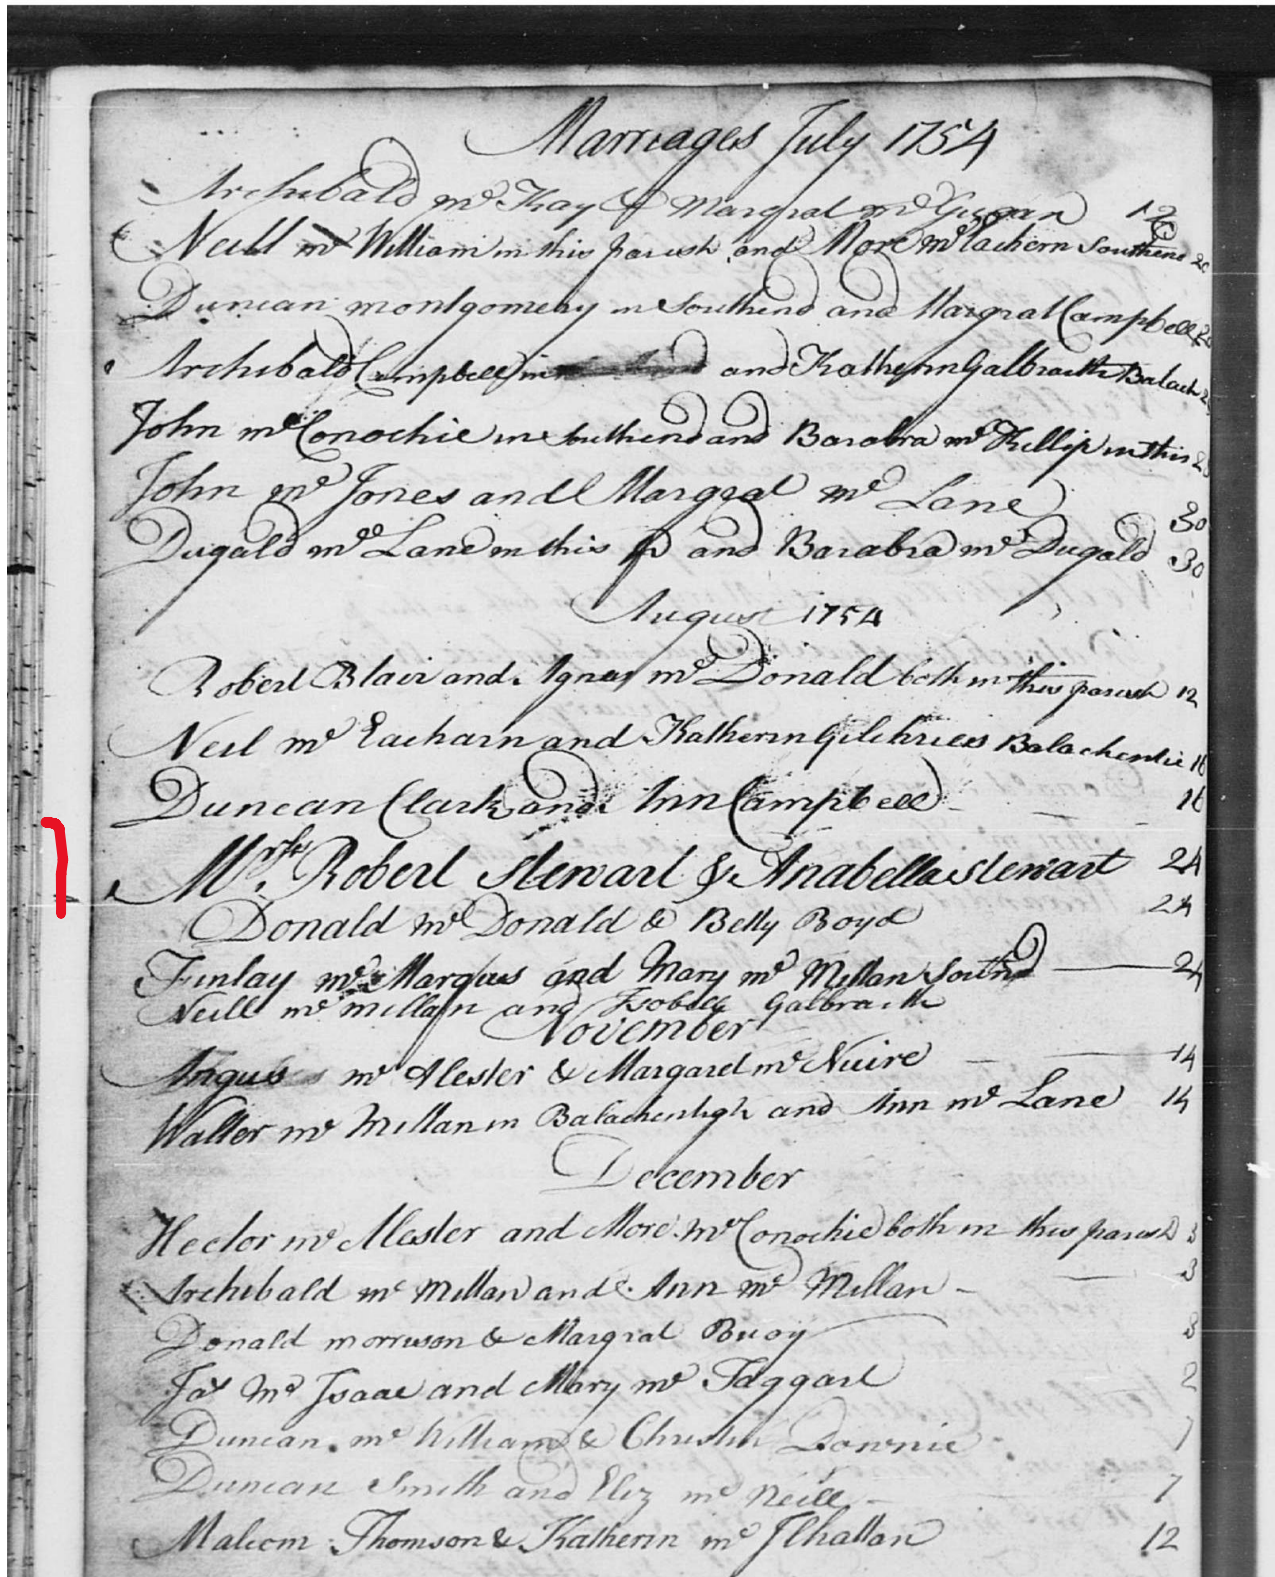 Marriages July 1754
Archibald mc Kay & Margrat mc Gugan 12
Neill mc William in this parish and More mc Eachern Southend 20
Duncan montgomery in Southend and Margrat Campbell
Archibald Campbell in and Katherin Galbraith Balach
John mc Conochie in Southend and Barabra mc Killip in this
John mc Jones and Margrat mc Lane 30
Dugald mc Lane in this p and Barabra mc Dugald 30
August 1754
Robert Blair and Agnas mc Donald both in this parish 12
Neil mc Eacharn and Katherin Gilchries Balachentie 16
Duncan Clark and Ann Campbell 16
Mr. Robert Stewart & Anabella Stewart 24
Donald mc Donald & Betty Boyd 24
Finlay mc Marqus and Mary mc Millan Southd 24
Neill mc millan and Isobell Galbraith
November
Angus mc Alester & Margaret mc Nuire 14
Walter mc Millan in and Ann mc Lane 14
December
Hector mc Alester and More mc Conochie both in this parish 3
Archibald mc Millan and Ann mc Millan 3
Donald morrison & Margrat Buoy 3
Jas Mc Isaac and Mary mc Taggart 2
Duncan mc William & Christin Downie 7
Duncan Smith and Eliz mc Neill 7
Malcom Thomson & Katherin mc Ilhattan 12